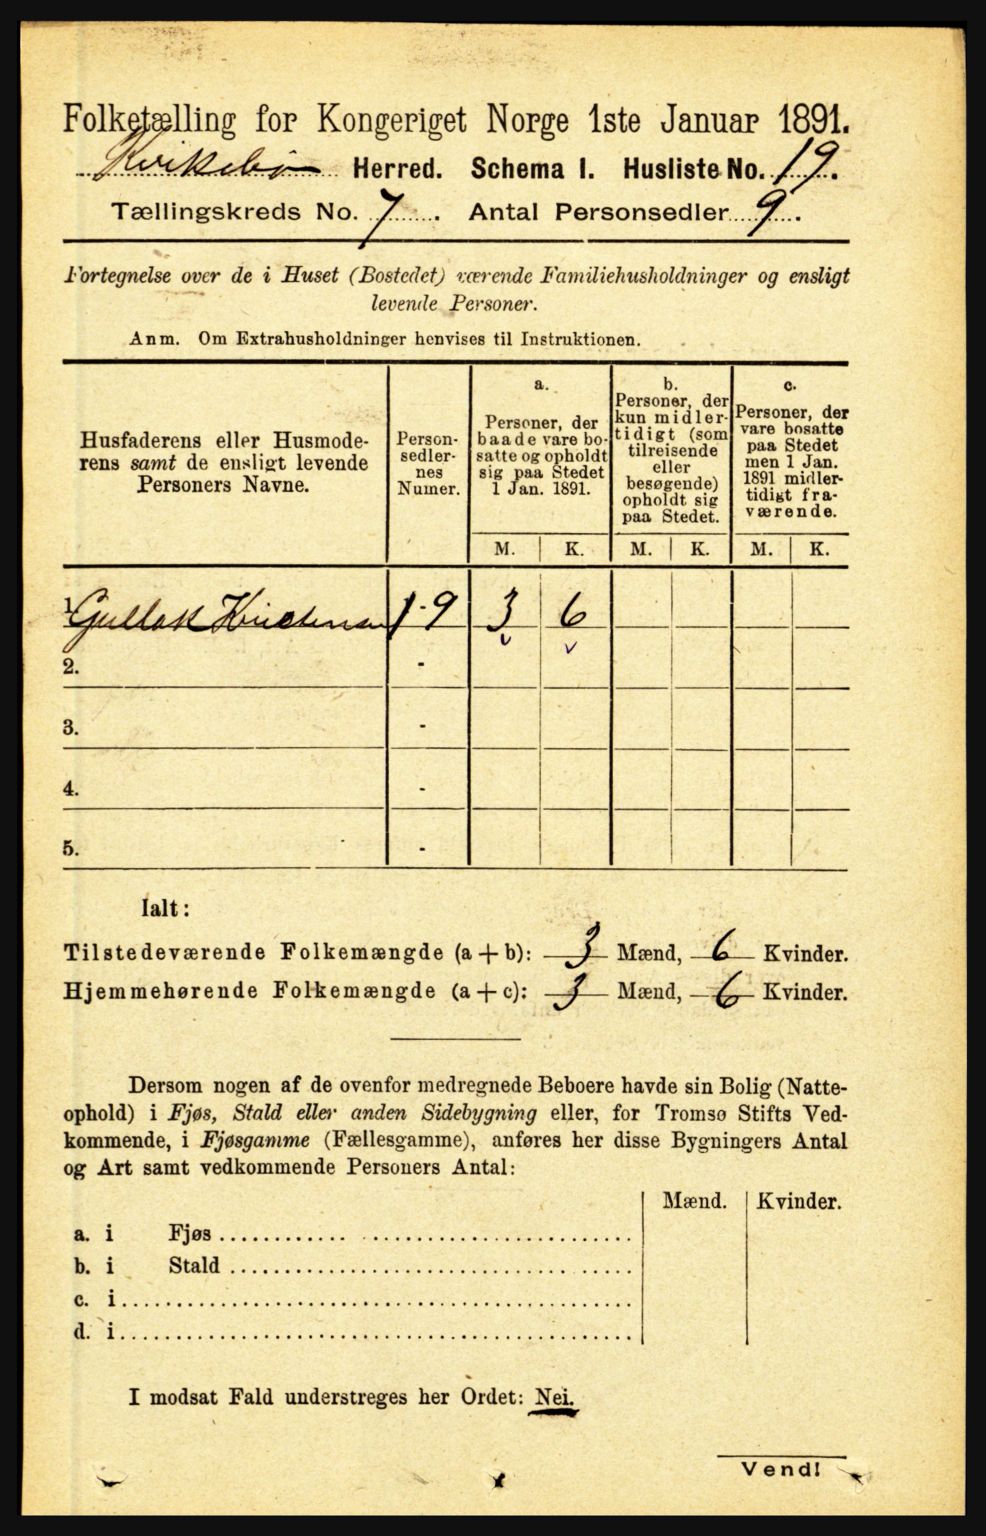 Folketælling for Kongeriget Norge 1ste Januar 1891.
Kirkebø Herred. Schema I. Husliste No. 19.
Tællingskreds No. 7. Antal Personsedler 9.
Fortegnelse over de i Huset (Bostedet) værende Familiehusholdninger og ensligt
levende Personer.
Anm. Om Extrahusholdninger henvises til Instruktionen.
Husfaderens eller Husmode-
rens samt de ensligt levende
Personers Navne.
Person-
sedler-
nes
Numer.
a.
Personer, der
baade vare bo-
satte og opholdt
sig paa Stedet
1 Jan. 1891.
b.
Personer, der
kun midler-
tidigt (som
tilreisende
eller
besøgende)
opholdt sig
paa Stedet.
c.
Personer, der
vare bosatte
paa Stedet
men 1 Jan.
1891 midler-
tidigt fra-
værende.
M. K. M. K. M. K.
1. Gullak 1-9 3 6
2. -
3. -
4. -
5. -
Ialt:
Tilstedeværende Folkemængde (a + b): 3 Mænd, 6 Kvinder.
Hjemmehørende Folkemængde (a + c): 3 Mænd, 6 Kvinder.
Dersom nogen af de ovenfor medregnede Beboere havde sin Bolig (Natte-
ophold) i Fjøs, Stald eller anden Sidebygning eller, for Tromsø Stifts Ved-
kommende, i Fjøsgamme (Fællesgamme), anføres her disse Bygningers Antal
og Art samt vedkommende Personers Antal:
Mænd. Kvinder.
a. i Fjøs
b. i Stald
c. i
d. i
I modsat Fald understreges her Ordet: Nei.
Vend!